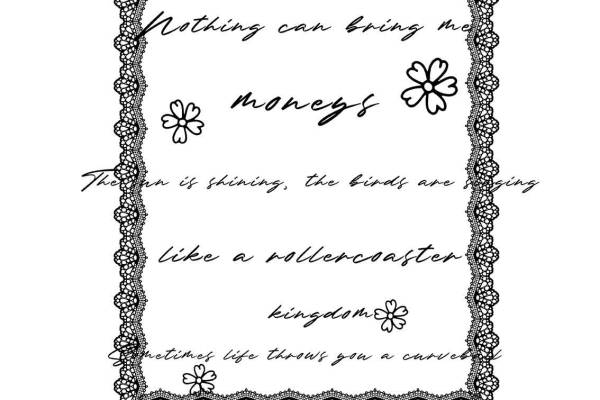 Nothing can bring me
moneys
The sun is shining, the birds are singing
like a rollercoaster
kingdom
Sometimes life throws you a curveball